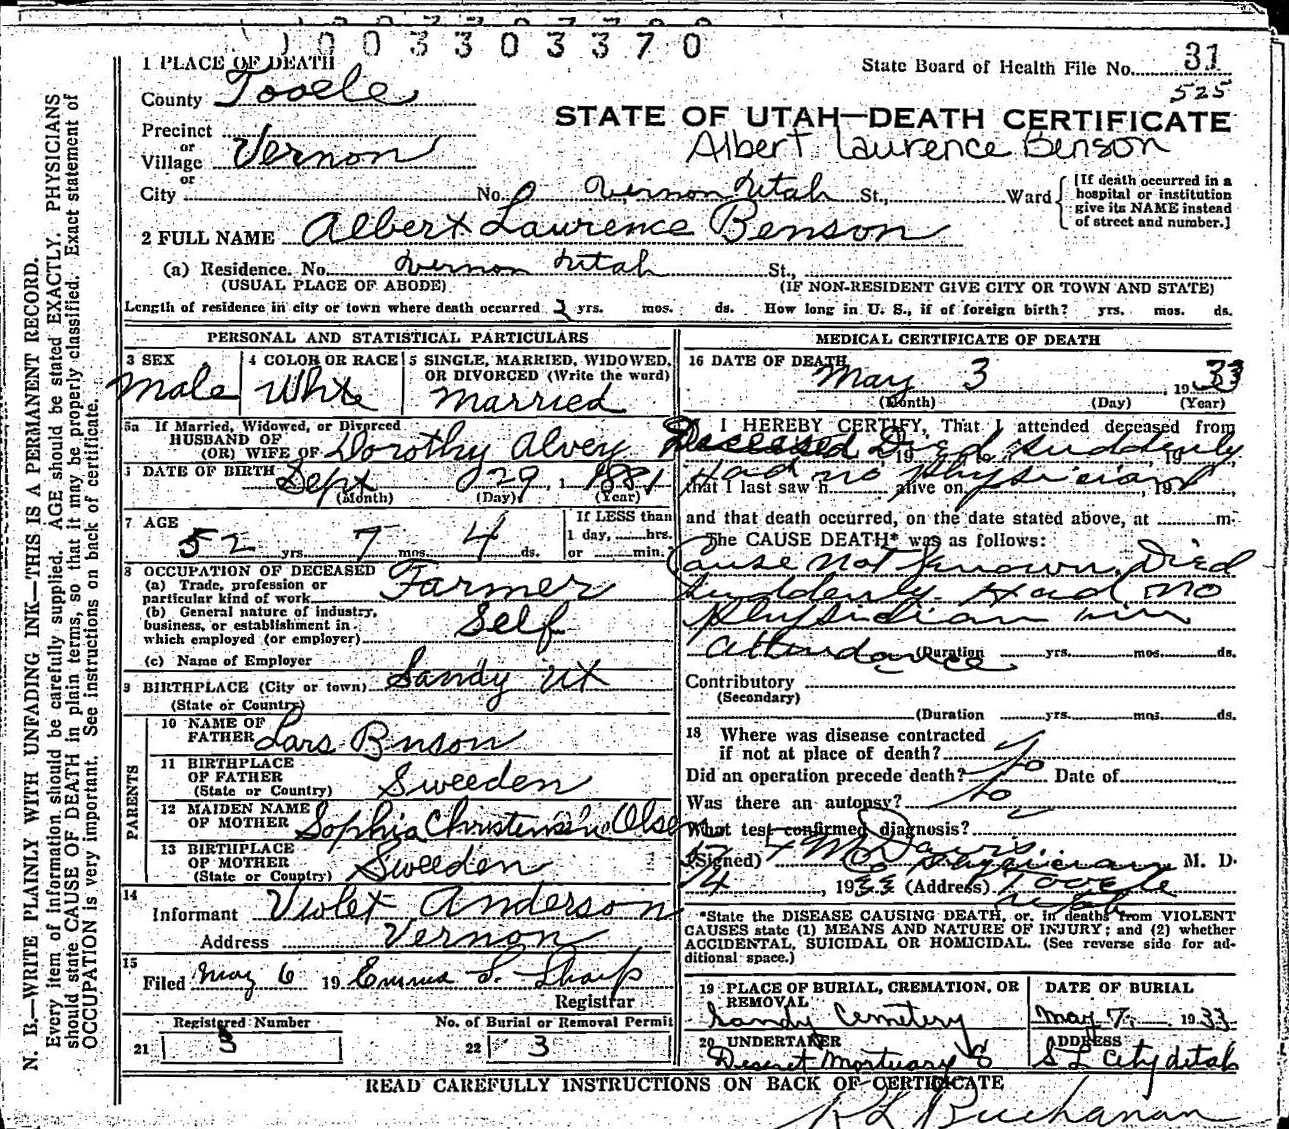 1003303370
State Board of Health File No. 31
525
1 PLACE OF DEATH
County Tooele
STATE OF UTAH—DEATH CERTIFICATE
Albert Laurence Benson
Precinct
or
Village Vernon
or
City No. Vernon Utah St., Ward [If death occurred in a hospital or institution give its NAME instead of street and number.]
2 FULL NAME Albert Laurence Benson
(a) Residence. No. Vernon Utah St.,
(USUAL PLACE OF ABODE) (IF NON-RESIDENT GIVE CITY OR TOWN AND STATE)
Length of residence in city or town where death occurred yrs. mos. ds. How long in U. S., if of foreign birth? yrs. mos. ds.
PERSONAL AND STATISTICAL PARTICULARS
3 SEX 4 COLOR OR RACE 5 SINGLE, MARRIED, WIDOWED,
OR DIVORCED (Write the word)
Male White Married
5a If Married, Widowed, or Divorced
HUSBAND OF
(OR) WIFE OF Dorothy Alvey
DATE OF BIRTH Sept 29, 1881
(Month) (Day) (Year)
7 AGE If LESS than
1 day, hrs.
52 yrs. 7 mos. 4 ds. or min.
8 OCCUPATION OF DECEASED
(a) Trade, profession or
particular kind of work Farmer
(b) General nature of industry,
business, or establishment in
which employed (or employer) Self
(c) Name of Employer
9 BIRTHPLACE (City or town) Sandy Ut
(State or Country)
PARENTS
10 NAME OF
FATHER Lars Bnson
11 BIRTHPLACE
OF FATHER Sweeden
(State or Country)
12 MAIDEN NAME
OF MOTHER Sophia Olsen
13 BIRTHPLACE
OF MOTHER Sweeden
(State or Country)
14
Informant Violet Anderson
Address Vernon
15
Filed May 6 19 Emma S. Sharp
Registrar
Registered Number No. of Burial or Removal Permit
21 3 22 3
MEDICAL CERTIFICATE OF DEATH
16 DATE OF DEATH
May 3 1933
(Month) (Day) (Year)
I HEREBY CERTIFY, That I attended deceased from
Deceased Died Suddenly
, 19 to , 19
Had no Physician
that I last saw h alive on , 19
and that death occurred, on the date stated above, at m.
The CAUSE DEATH* was as follows:
Cause Not Known. Died
Suddenly Had no
Physidian in
attendance (Duration yrs. mos. ds.
Contributory
(Secondary)
(Duration yrs. mos. ds.
18 Where was disease contracted
if not at place of death?
Did an operation precede death? No Date of
Was there an autopsy? No
What test confirmed diagnosis?
(Signed) Davis M. D.
Co Physician
, 1933 (Address) Tooele
Utah
*State the DISEASE CAUSING DEATH, or, in deaths from VIOLENT
CAUSES state (1) MEANS AND NATURE OF INJURY; and (2) whether
ACCIDENTAL, SUICIDAL OR HOMICIDAL. (See reverse side for ad-
ditional space.)
19 PLACE OF BURIAL, CREMATION, OR
REMOVAL DATE OF BURIAL
Sandy Cemetery May 7, 1933
20 UNDERTAKER ADDRESS
Deseret Mortuary S L City Utah
READ CAREFULLY INSTRUCTIONS ON BACK OF CERTIFICATE
R L Buchanan
N. B.—WRITE PLAINLY WITH UNFADING INK—THIS IS A PERMANENT RECORD.
Every item of information should be carefully supplied. AGE should be stated EXACTLY. PHYSICIANS
should state CAUSE OF DEATH in plain terms, so that it may be properly classified. Exact statement of
OCCUPATION is very important. See instructions on back of certificate.